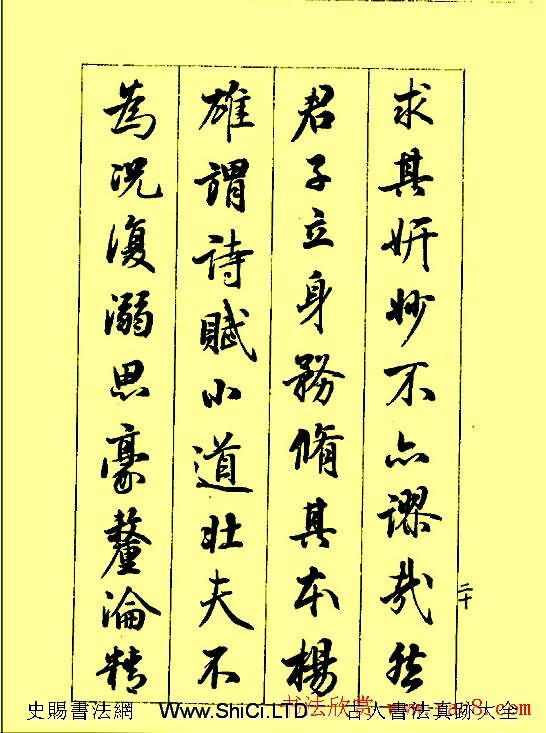 求其妍妙不亦謬哉然
君子立身務脩其本楊
雄謂詩賦小道壯夫不
為況復溺思豪釐淪精
二十
史賜書法網 Www.ShiCi.LTD 古人書法真跡大全
书法欣赏